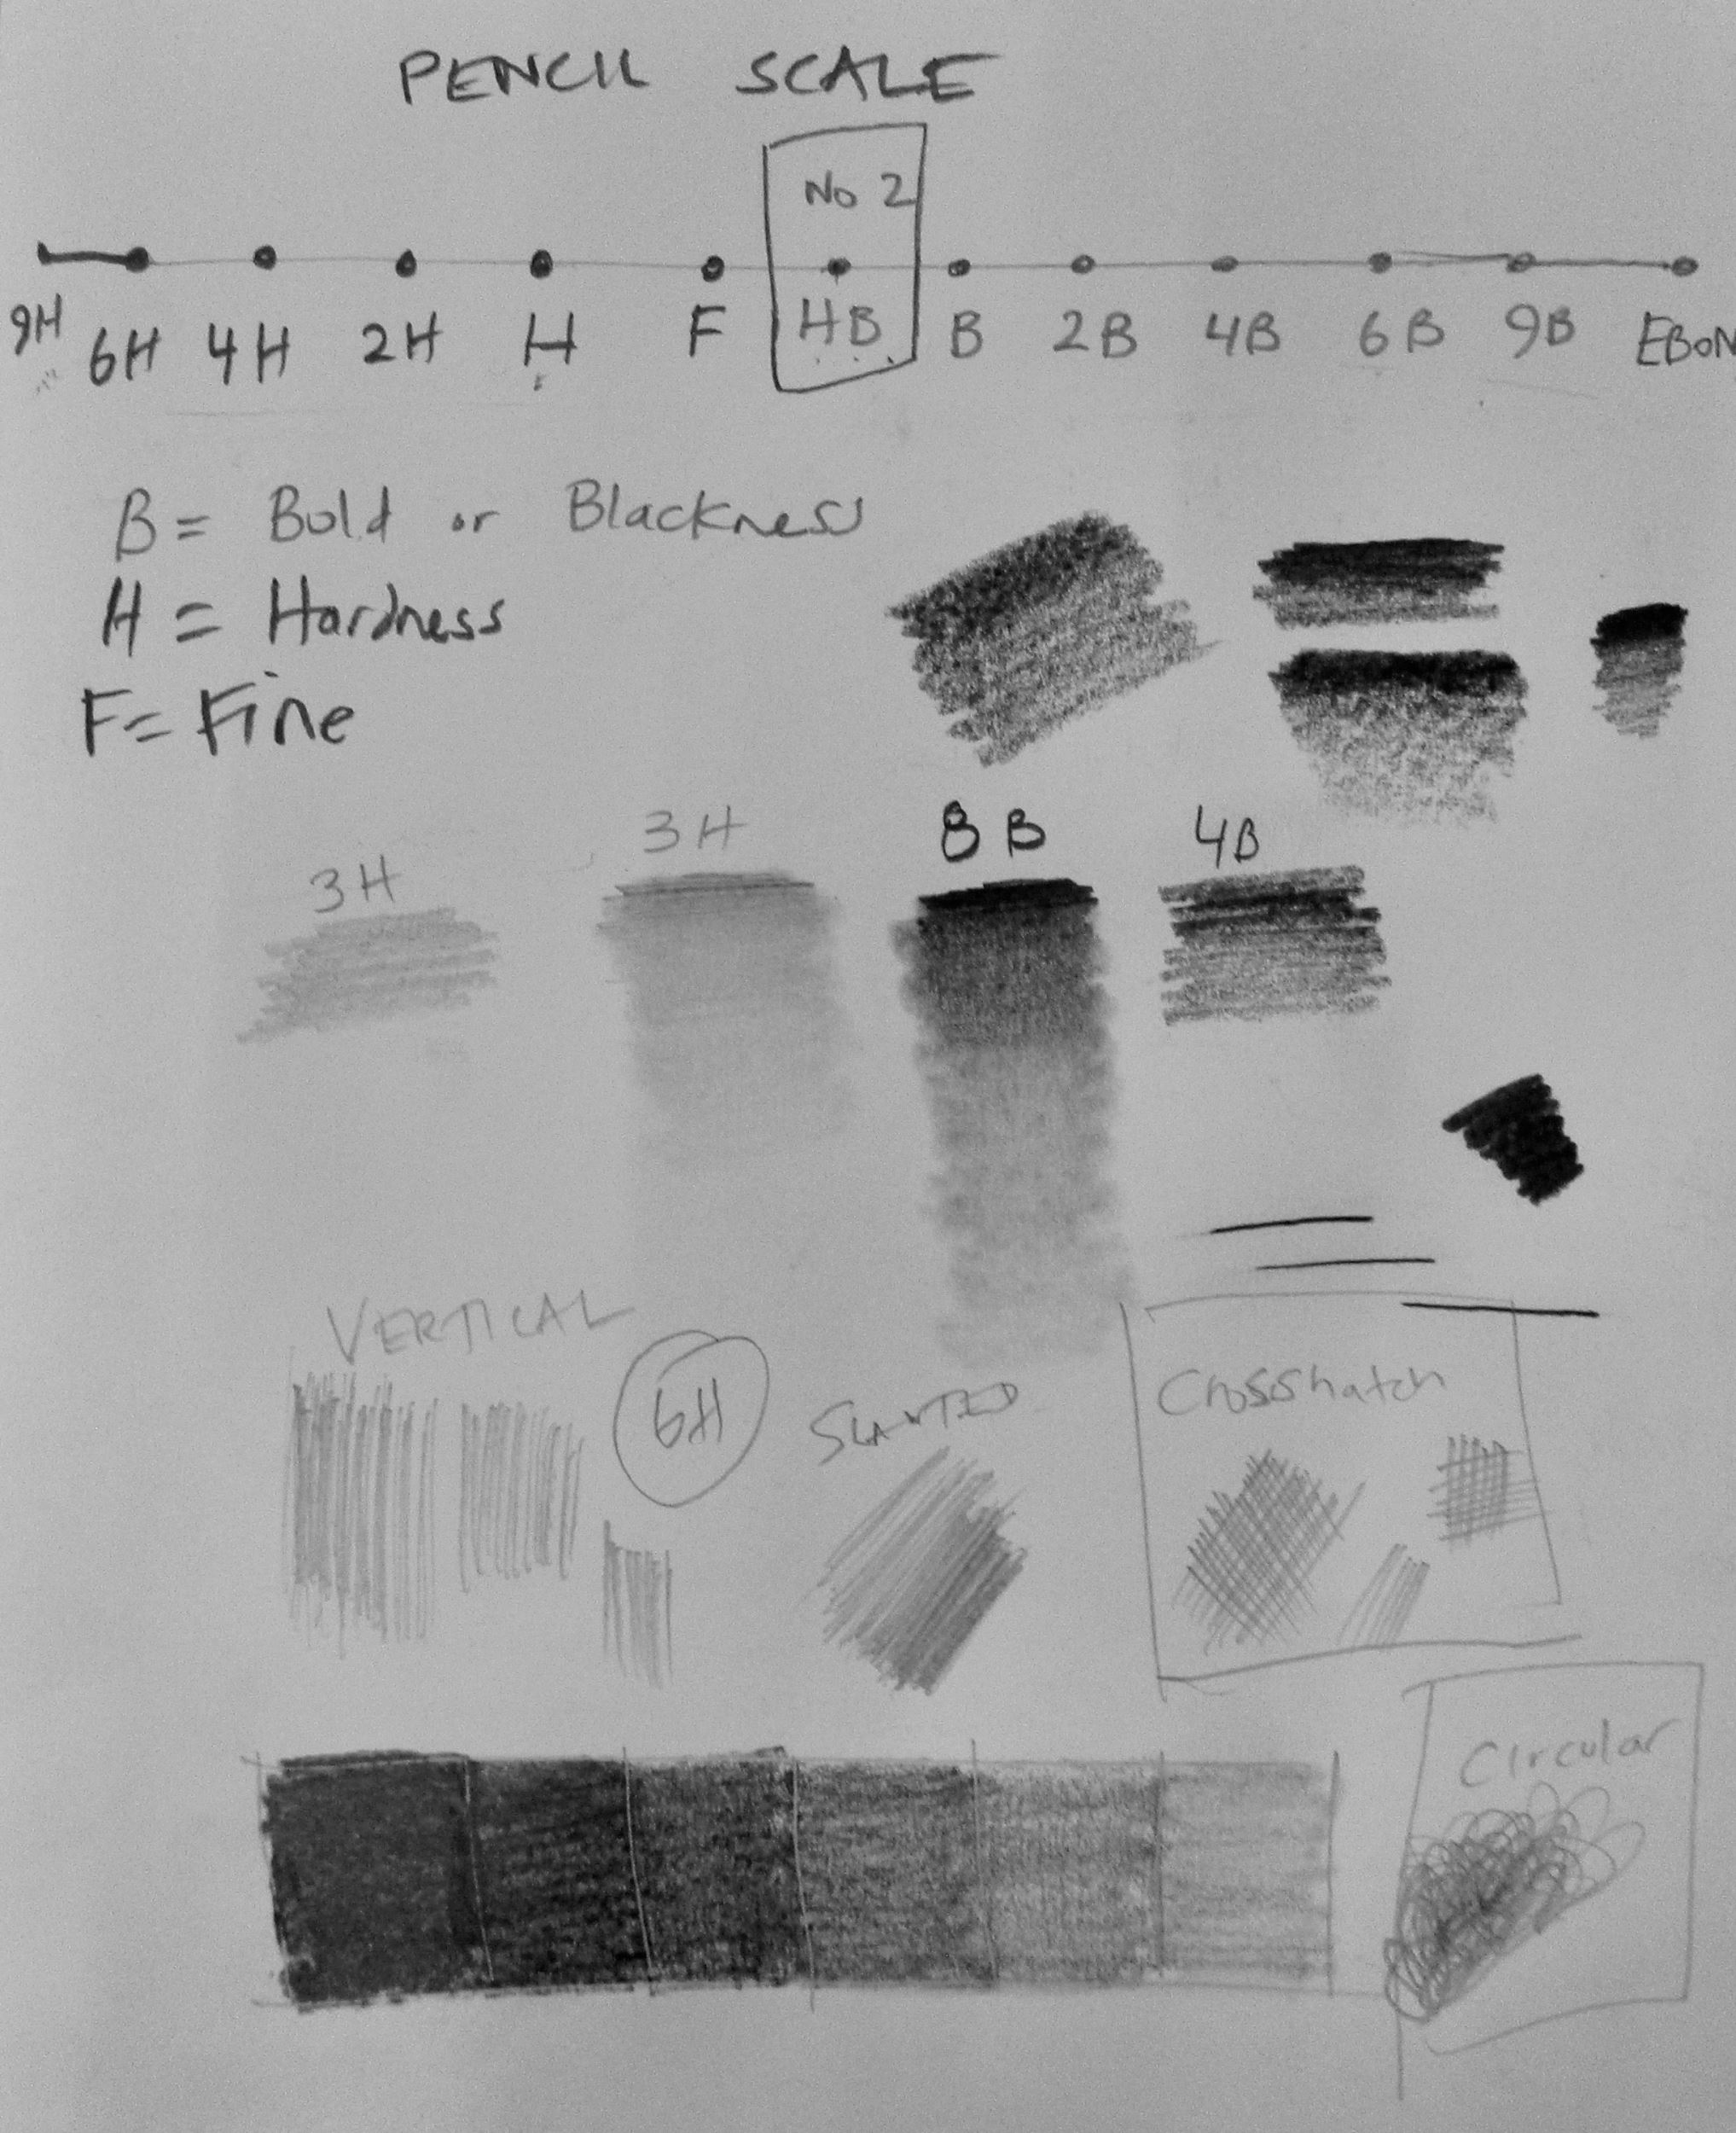 PENCIL SCALE
No 2
9H 6H 4H 2H H F HB B 2B 4B 6B 9B EBON
B = Bold or Blackness
H = Hardness
F = Fine
3H 3H 8B 4B
VERTICAL
6H
SLANTED
Crosshatch
Circular